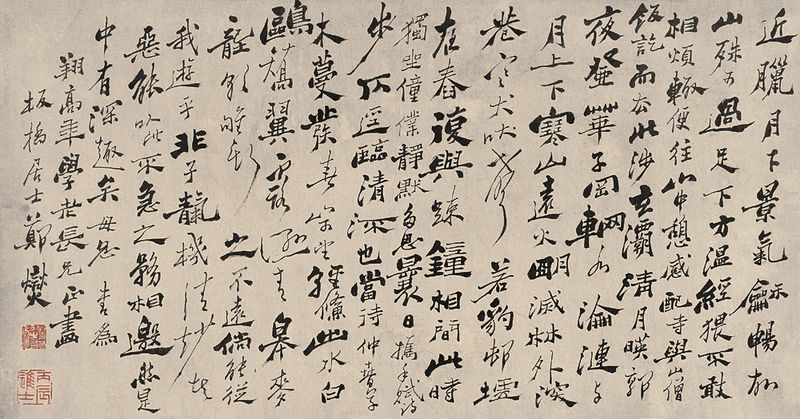 近臘月下景氣龢暢故
山殊可過足下方溫經猥不敢
相煩輒便往山中憩感配寺與山僧
飯訖而去北涉玄灞清月暎郭
夜登華子岡輞水淪漣與
月上下寒山遠火明滅林外深
巷寒犬吠聲若豹邨墟
夜舂復與疎鐘相間此時
獨坐僮僕靜默多思曩日攜手賦詩
步仄逕臨清流也當待仲春草
木蔓發春山可望輕鯈出水白
鷗矯翼露溼青皋麥
隴朝雊斯之不遠倘能從
我遊乎非子靝機清妙者
惡能以此不急之務相邀然是
中有深趣矣毋忽 書為
翔高年學老長兄正
板橋居士鄭燮
丙辰進士